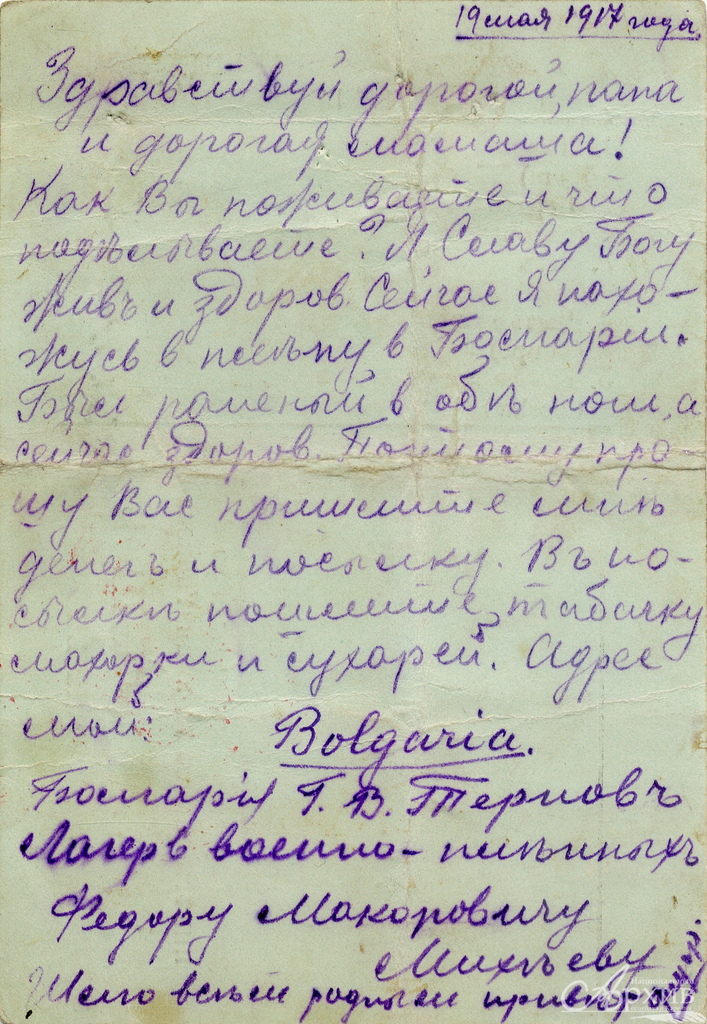 19 мая 1917 года.
Здравствуй дорогой папа
и дорогая мамаша!
Как Вы поживаете и что
подѣлываете? Я Славу Богу
живъ и здоров. Сейчас я нахо-
жусь в плѣну в Болгаріи.
Был раненый в обѣ ноги, а
сейчас здоров. Поэтому про-
шу Вас пришлите мнѣ
денегъ и посылку. Въ по-
сылкѣ пошлите, табачку
махорки и сухарей. Адрес
мой:
Bolgaria.
Болгарія Г. В. Терновъ
Лагерь военно-плѣнныхъ
Федору Макоровичу
Михѣеву
Шлю всѣм родным привѣт
АРХИВ